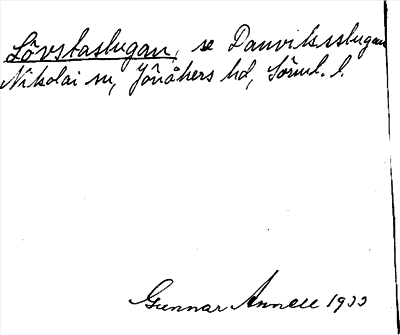 Lövstastugan, se Danviksstugan
Nikolai sn, Jönåkers hd, Sörml. l.
Gunnar Annell 1933